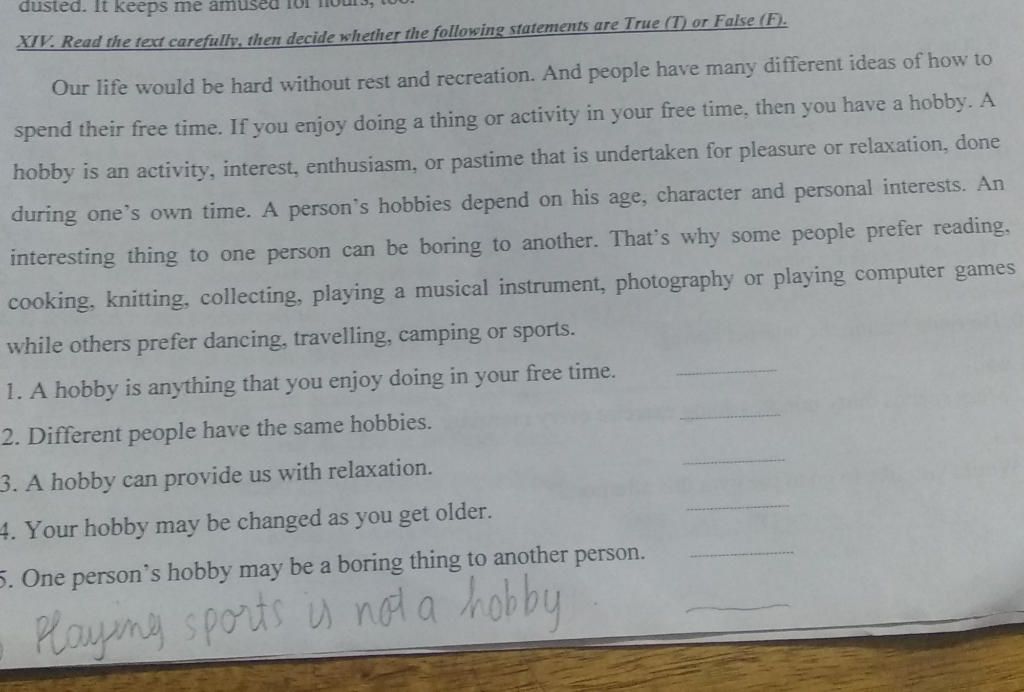 dusted. It keeps me amused for hours, too.
XIV. Read the text carefully, then decide whether the following statements are True (T) or False (F).
Our life would be hard without rest and recreation. And people have many different ideas of how to
spend their free time. If you enjoy doing a thing or activity in your free time, then you have a hobby. A
hobby is an activity, interest, enthusiasm, or pastime that is undertaken for pleasure or relaxation, done
during one's own time. A person's hobbies depend on his age, character and personal interests. An
interesting thing to one person can be boring to another. That's why some people prefer reading,
cooking, knitting, collecting, playing a musical instrument, photography or playing computer games
while others prefer dancing, travelling, camping or sports.
1. A hobby is anything that you enjoy doing in your free time.
2. Different people have the same hobbies.
3. A hobby can provide us with relaxation.
4. Your hobby may be changed as you get older.
5. One person's hobby may be a boring thing to another person.
Playing sports is not a hobby.